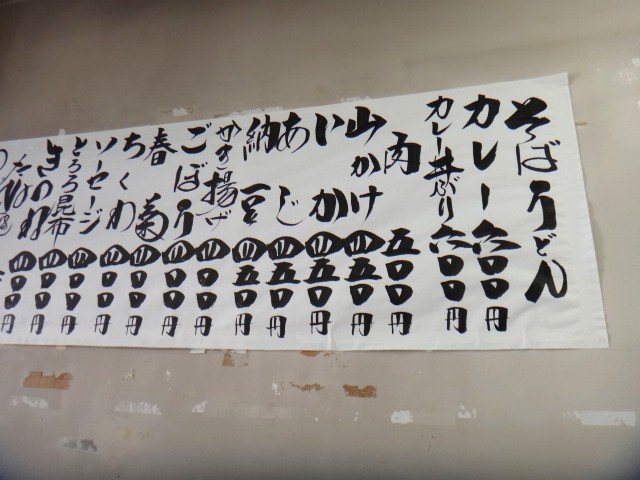 そばうどん
カレー六〇〇円
カレー丼ぶり六〇〇円
肉五〇〇円
山かけ四五〇円
いか四五〇円
あじ四五〇円
納豆四五〇円
かき揚げ四〇〇円
ごぼう四〇〇円
春菊四〇〇円
ちくわ四〇〇円
ソーセージ四〇〇円
とろろ昆布四〇〇円
きつね四〇〇円